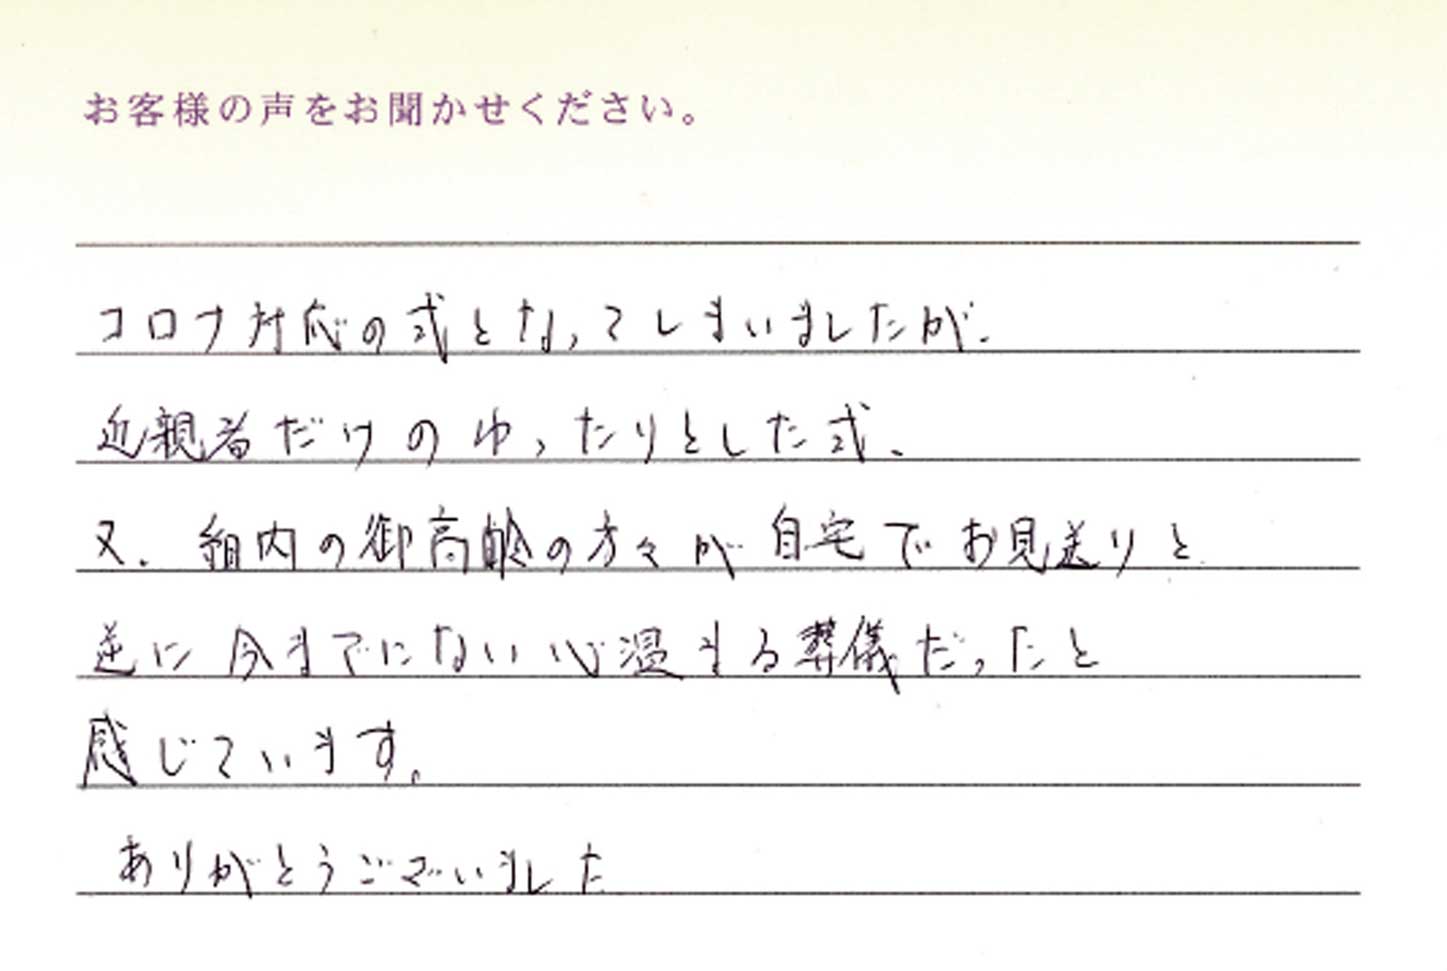 お客様の声をお聞かせください。
コロナ対応の式となってしまいましたが、
近親者だけのゆったりとした式、
又、組内の御高齢の方々が自宅でお見送りと
逆に今までにない心温まる葬儀だったと
感じています。
ありがとうございました